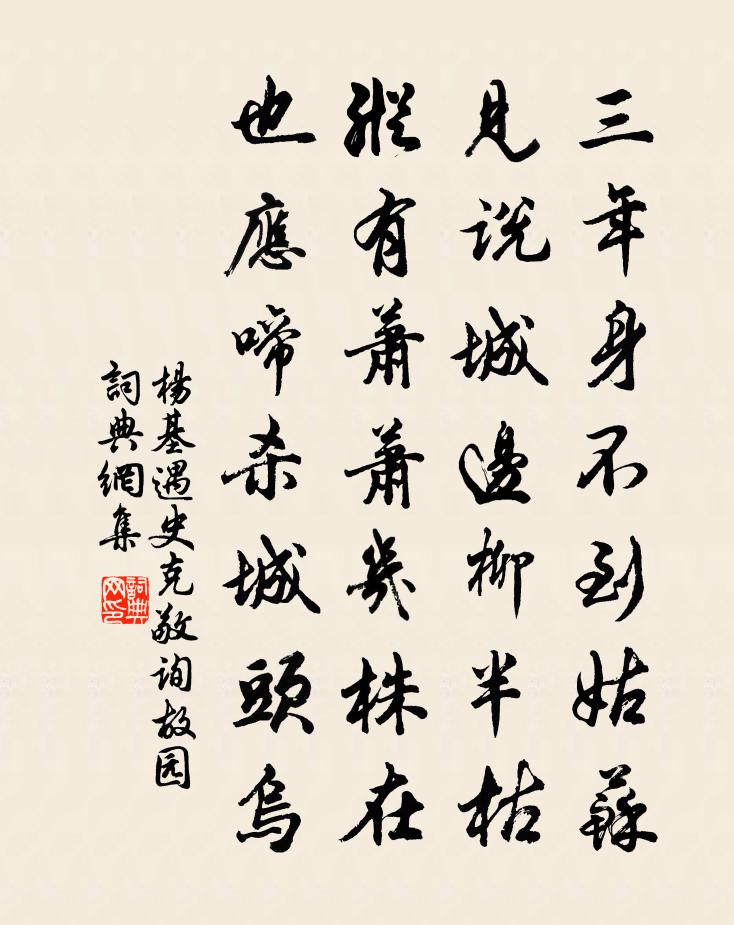 三年身不到姑蘇
見説城邊柳半枯
縱有蕭蕭幾株在
也應啼杀城頭烏
楊基遇史克敬詢故园
詞典網集
詞典
网印